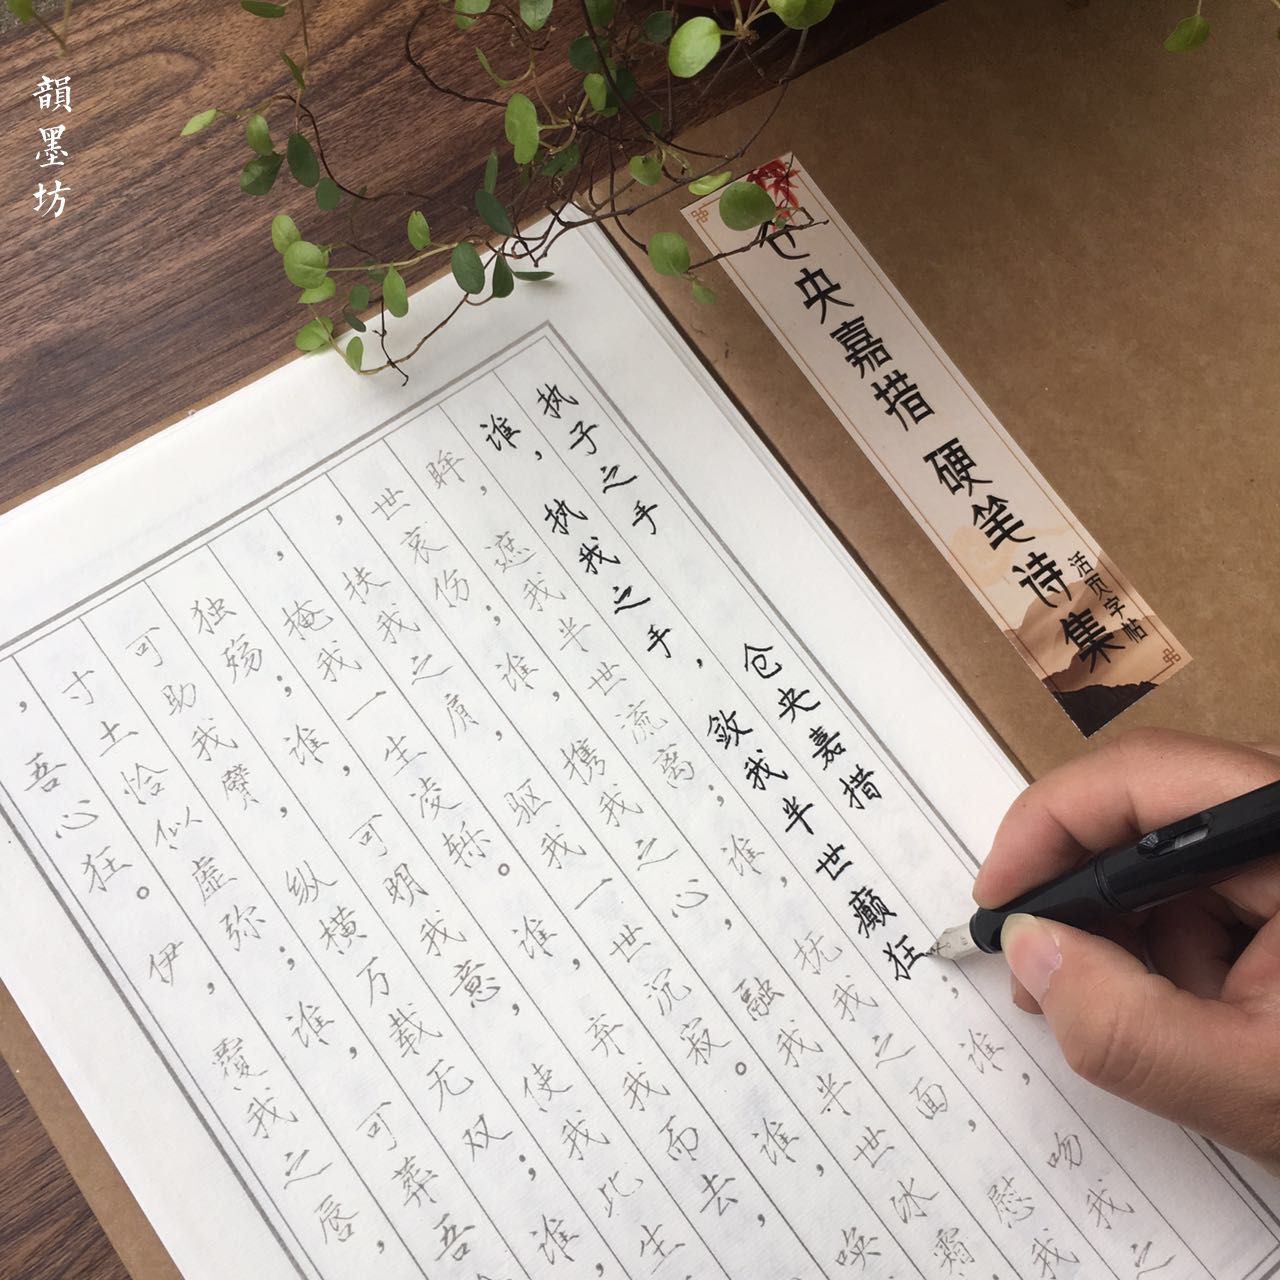 韻墨坊
仓央嘉措 硬笔诗集
活页字帖
执子之手 仓央嘉措
谁，执我之手，敛我半世癫狂；谁，吻我之
眸，遮我半世流离；谁，抚我之面，慰我
世哀伤；谁，携我之心，融我半世冰霜
，扶我之肩，驱我一世沉寂。谁，唤
，掩我一生凌轹。谁，弃我而去，
独殇；谁，可明我意，使我此生
可助我臂，纵横万载无双；谁
寸土恰似虚弥；谁，可葬吾
，吾心狂。伊，覆我之唇，